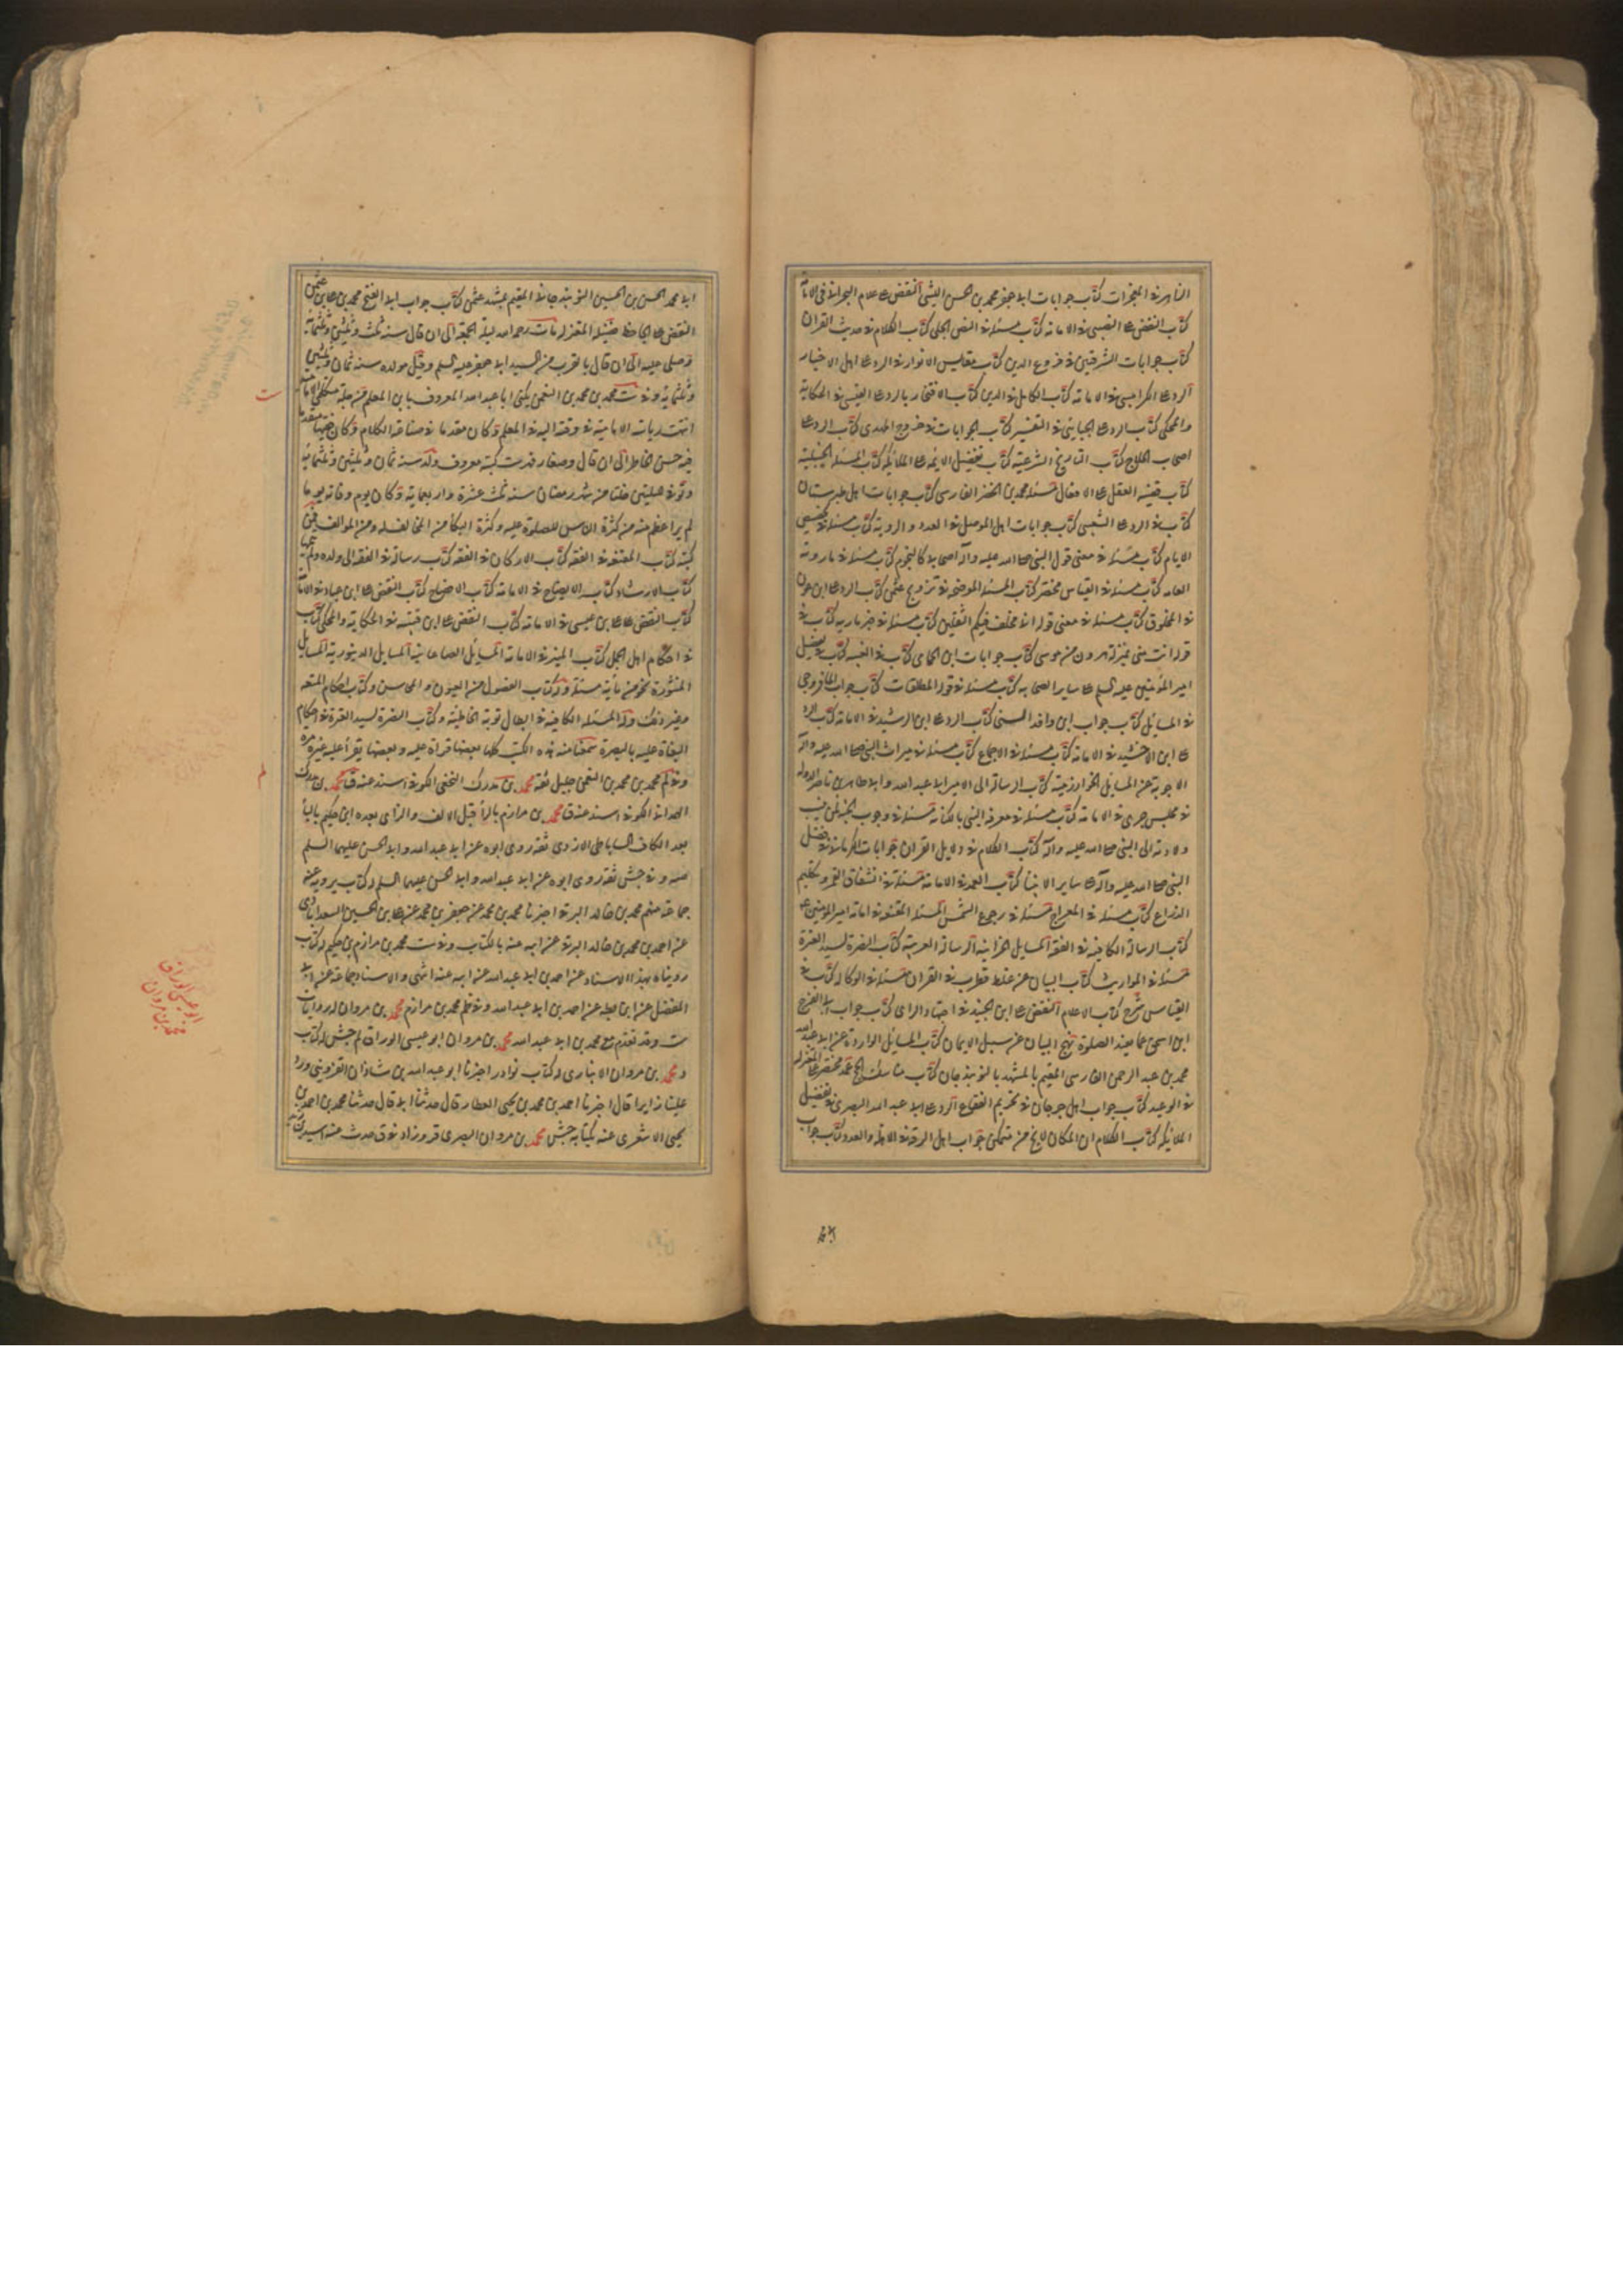 الناصر في المعجزات كتاب جوابات ابي جعفر محمد بن الحسن الليثي النقض على غلام البحراني في الامامة
كتاب النقض على النصيبي في الامامة كتاب مسئلة في النص الجلي كتاب الكلام في حدث القران
كتاب جوابات الشرقيين في فروع الدين كتاب مقابيس الانوار في الرد على اهل الاخبار
الرد على الكرابيسي في الامامة كتاب الكامل في الدين كتاب الافتخار الرد على العتبي في الحكاية
والمحكي كتاب الرد على الجبائي في التفسير كتاب الجوابات في خروج المهدي كتاب الرد على
اصحاب الحلاج كتاب التاريخ الشرعية كتاب تفضيل الائمة على الملائكة كتاب المسئلة الحنبلية
كتاب قضية العقل على الافعال مسئلة محمد بن الخضر الفارسي كتاب جوابات اهل طبرستان
كتاب في الرد على الشعبي كتاب جوابات اهل الموصل في العدد والروية كتاب مسئلة في تخصيص
الايام كتاب مسئلة في معنى قول النبي صلى الله عليه واله اصحابي كالنجوم كتاب مسئلة فيما روته
العامة كتاب مسئلة في القياس مختصر كتاب المسئلة الموضحة في تزويج عثمن كتاب الرد على ابن عون
في المخلوق كتاب مسئلة في معنى قوله اني مخلف فيكم الثقلين كتاب مسئلة في خبر مارية كتاب في
قوله انت مني بمنزلة هرون من موسى كتاب جوابات ابن الحمامي كتاب في الغيبة كتاب في تفضيل
امير المؤمنين عليه السلم على ساير الصحابة كتاب مسئلة في قوله المطلقات كتاب جواب المافروخي
في المسايل كتاب جواب ابن واقد السني كتاب الرد على ابن الرشيد في الامامة كتاب الرد
على ابن الاخشيد في الامامة كتاب مسئلة في الاجماع كتاب مسئلة في ميراث النبي صلى الله عليه واله
الاجوبة عن المسايل الخوارزمية كتاب الرسالة الى الامير ابي عبد الله وابي طاهر بن ناصر الدولة
في مجلس جرى في الامامة كتاب مسئلة في معرفة النبي بالكتابة مسئلة في وجوب الجنة لمن ينسب
ولادته الى النبي صلى الله عليه واله كتاب الكلام في دلايل القران جوابات الكرماني في فضل
النبي صلى الله عليه واله على ساير الانبيا كتاب العمد في الامامة مسئلة في انشقاق القمر وتكليم
الذراع كتاب مسئلة في المعراج مسئلة في رجوع الشمس المسئلة المقنعة في امامة امير المؤمنين
كتاب الرسالة الكافية في الفقه المسايل الحرانية الرسالة العزية كتاب النصرة لسيد العترة
مسئلة في المواريث كتاب البيان عن غلط قطرب في القران مسئلة في الوكالة كتاب في
القياس شرح كتاب الاعلام النقض على ابن الجنيد في اجتهاد الراي كتاب جواب ابي الفرج
ابن اسحق عما يفسد الصلوة نهج البيان عن سبيل الايمان كتاب المسايل الواردة عن ابي عبد الله
محمد بن عبد الرحمن الفارسي المقيم بالمشهد بالنوبندجان كتاب مناسك الحج عمد مختصر على المعتزلة
في الوعيد كتاب جواب اهل جرجان في تحريم الفقاع الرد على ابي عبد الله البصري في تفضيل
الملائكة كتاب الكلام ان المكان لا يخ من متمكن جواب اهل الرقة في الاهلة والعدد كتاب جواب
ابي محمد الحسن بن الحسين النوبندجاني المقيم بمشهد عثمن كتاب جواب ابي الفتح محمد بن علي بن عثمن
النقض على الجاحظ فضيلة المعتزلة مات رحمه الله ليلة الجمعة الى ان قال سنة
وصلى عليه الى ان قال بالقرب من السيد ابي جعفر عليه السلم وقيل مولده سنة ثمان وثلثين
وثلثماية وفي ست محمد بن محمد بن النعمن يكنى ابا عبد الله المعروف بابن المعلم من جملة متكلمي الامامية
انتهت رياسة الامامية في وقته اليه في العلم وكان مقدما في صناعة الكلام وكان فقيها متقدما
فيه حسن الخاطر الى ان قال وصغار فهرست كتبه معروف ولد سنة ثمان وثلثين وثلثماية
وتوفي لليلتين خلتا من شهر رمضان سنة ثلث عشرة واربعماية وكان يوم وفاته يوما
لم ير اعظم منه من كثرة الناس للصلوة عليه وكثرة البكا من المخالف له ومن الموالف فمن
كتبه كتاب المقنعة في الفقه كتاب الاركان في الفقه كتاب رسالة في الفقه الى ولده ولم يتمها
كتاب الارشاد كتاب الايضاح في الامامة كتاب الافصاح كتاب النقض على ابن عباد في الامامة
كتاب النقض على علي بن عيسى في الامامة كتاب النقض على ابن قتيبة في الحكاية والمحكي كتاب
في احكام اهل الجمل كتاب المنير في الامامة المسايل الصاغانية المسايل الدينورية المسايل
المنثورة نحو من ماية مسئلة وله كتاب الفصول من العيون والمحاسن وكتاب احكام المتعة
وغير ذلك وله المسئلة الكافية في ابطال توبة الخاطئة وكتاب النصرة لسيد العترة في احكام
البغاة عليه بالبصرة سمعنا منه هذه الكتب كلها بعضها قراة عليه وبعضها يقرأ عليه غير مرة
وفي لم محمد بن محمد بن النعمن جليل ثقة محمد بن مدرك النخعي الكوفي اسند عنه ق محمد بن مدرك
الهمداني الكوفي اسند عنه ق محمد بن مرازم بالرا قبل الالف والزاي بعده ابن حكيم باليا
بعد الكاف الساباطي الازدي ثقة روى ابوه عن ابي عبد الله وابي الحسن عليهما السلم
صه وفي جش ثقة روى ابوه عن ابي عبد الله وابي الحسن عليهما السلم له كتاب يرويه عنه
جماعة منهم محمد بن خالد البرقي اخبرنا محمد بن محمد عن جعفر بن محمد عن علي بن الحسين السعدابادي
عن احمد بن محمد بن خالد البرقي عن ابيه عنه بالكتاب وفي ست محمد بن مرازم بن حكيم له كتاب
رويناه بهذا الاسناد عن احمد بن ابي عبد الله عن ابيه عنه انتهى والاسناد جماعة عن ابي
المفضل عن ابن بطة عن احمد بن ابي عبد الله وفي لم محمد بن مرازم محمد بن مروان له روايات
ست وقد تقدم مع محمد بن ابي عبد الله محمد بن مروان ابو عيسى الوراق لم جش له كتاب
د محمد بن مروان الانباري له كتاب نوادر اخبرنا ابو عبد الله بن شاذان القزويني ورد
علينا زايرا قال اخبرنا احمد بن محمد بن يحيى العطار قال حدثنا ابي قال حدثنا محمد بن احمد بن
يحيى الاشعري عنه بكتابه جش محمد بن مروان البصري
ت
م
ابو عيسى الوراق
محمد بن مروان